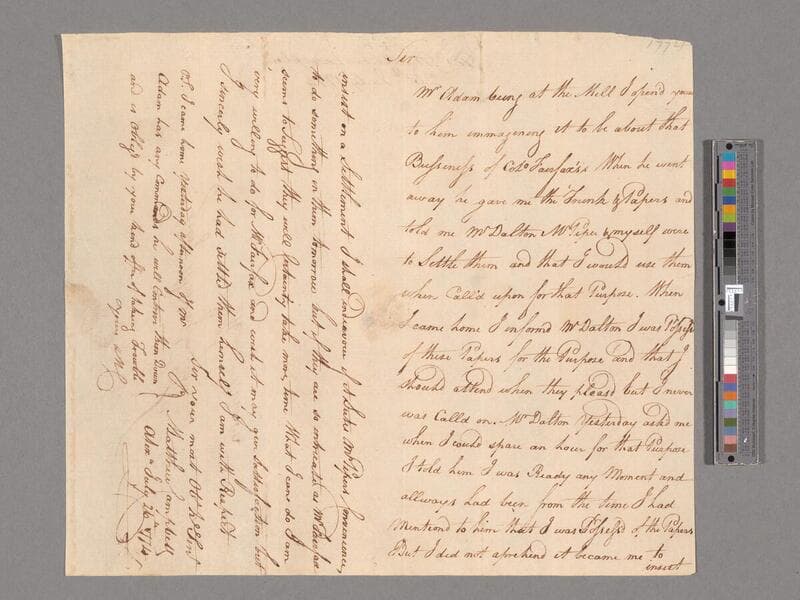 1774
Sir
Mr Adam being at the Mill I spend your
to him immagening it to be about that
Bussiness of Colo Fairfax's When he went
away he gave me the Trunk & Papers and
told me Mr Dalton Mr Piper & myself were
to Settle them and that I would use them
when Call'd upon for that Purpose. When
I came home I inform'd Mr Dalton I was Possess
of these Papers for the Purpose and that I
should attend when they pleasd but I never
was Calld on. Mr Dalton Yesterday askd me
when I could spare an hour for that Purpose
I told him I was Ready any Moment and
allways had been from the time I had
Mentiond to him that I was Possessd of the Papers
But I did not aprehend it became me to
insist
insist on a Settlement I shall endeavour if it Suits Mr Pipers Conveniency,
to do something on them tomorrow but if they are so intricate as Mr
seems to Sugest they will Certainly take more time What I can do I am
very willing to do for Mr Fairfax and wish it may give Satisfaction but
I sincerly wish he had settled them himself I am with Respect
Sir your most Obt Servt
Matthew Campbell
Alexa July 26th 1774
PS. I came home Yesterday afternoon if Mr
Adam has any Commands he will Convey them Down
and is Oblig'd by your kind offer of taking Trouble
yours MC